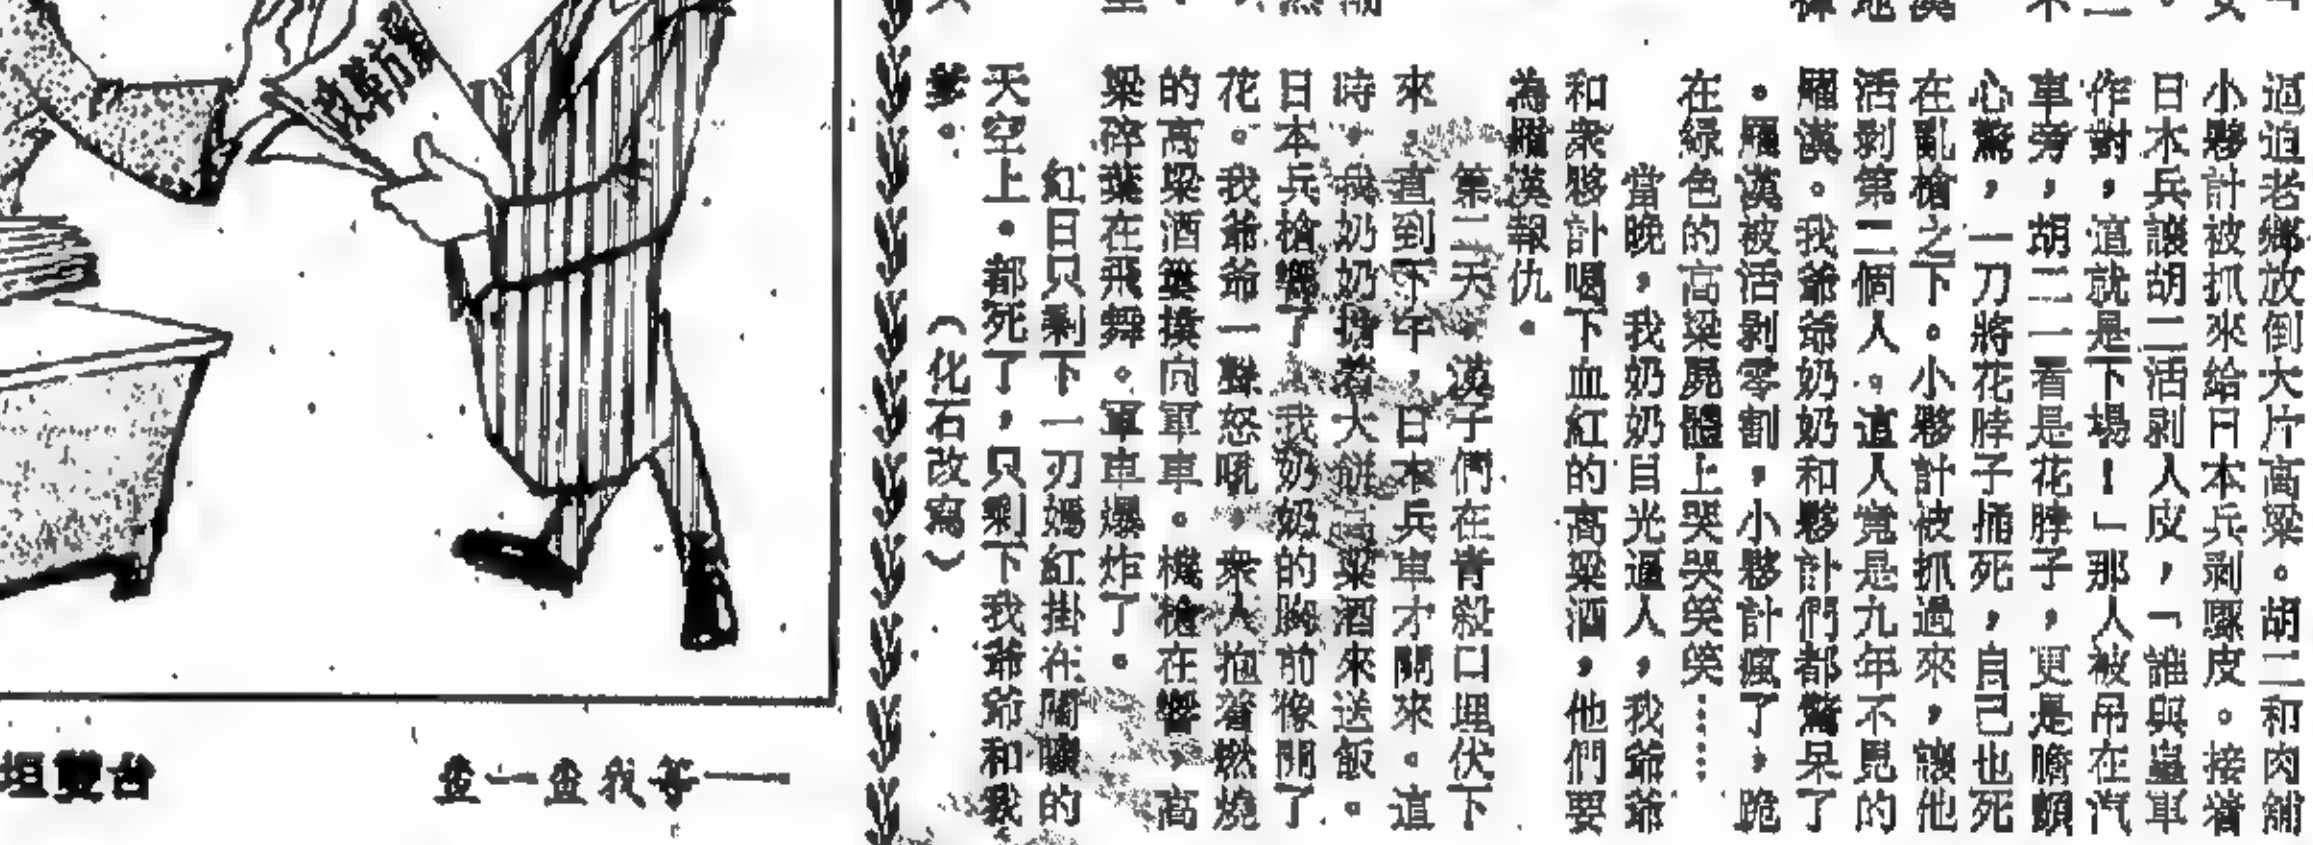 逼迫老鄉放倒大片高粱。胡二和肉舖
小夥計被抓來給日本兵剥騾皮。接着
日本兵讓胡二活剥人皮，「誰與皇軍
作對，這就是下場！」那人被吊在汽
車旁，胡二一看是花脖子，更是膽顫
心驚，一刀將花脖子捅死，自己也死
在亂槍之下。小夥計被抓過來，讓他
活剥第二個人。這人竟是九年不見的
羅漢。我爺爺奶奶和夥計們都驚呆了
。羅漢被活剥零割，小夥計瘋了，跪
在綠色的高粱屍體上哭哭笑笑……
當晚，我奶奶目光逼人，我爺爺
和衆夥計喝下血紅的高粱酒，他們要
為羅漢報仇。
第二天，漢子們在青殺口埋伏下
來。直到下午，日本兵車才開來。這
時，我奶奶挑着大餅高粱酒來送飯。
日本兵槍響了，我奶奶的胸前像開了
花。我爺爺一聲怒吼，衆人抱着燃燒
的高粱酒罈撲向軍車。機槍在響，高
粱碎葉在飛舞。軍車爆炸了。
紅日只剩下一刃嫣紅掛在闇曠的
天空上。都死了，只剩下我爺爺和我
爹。
（化石改寫）
改革方
查一查我等——
坦雙台